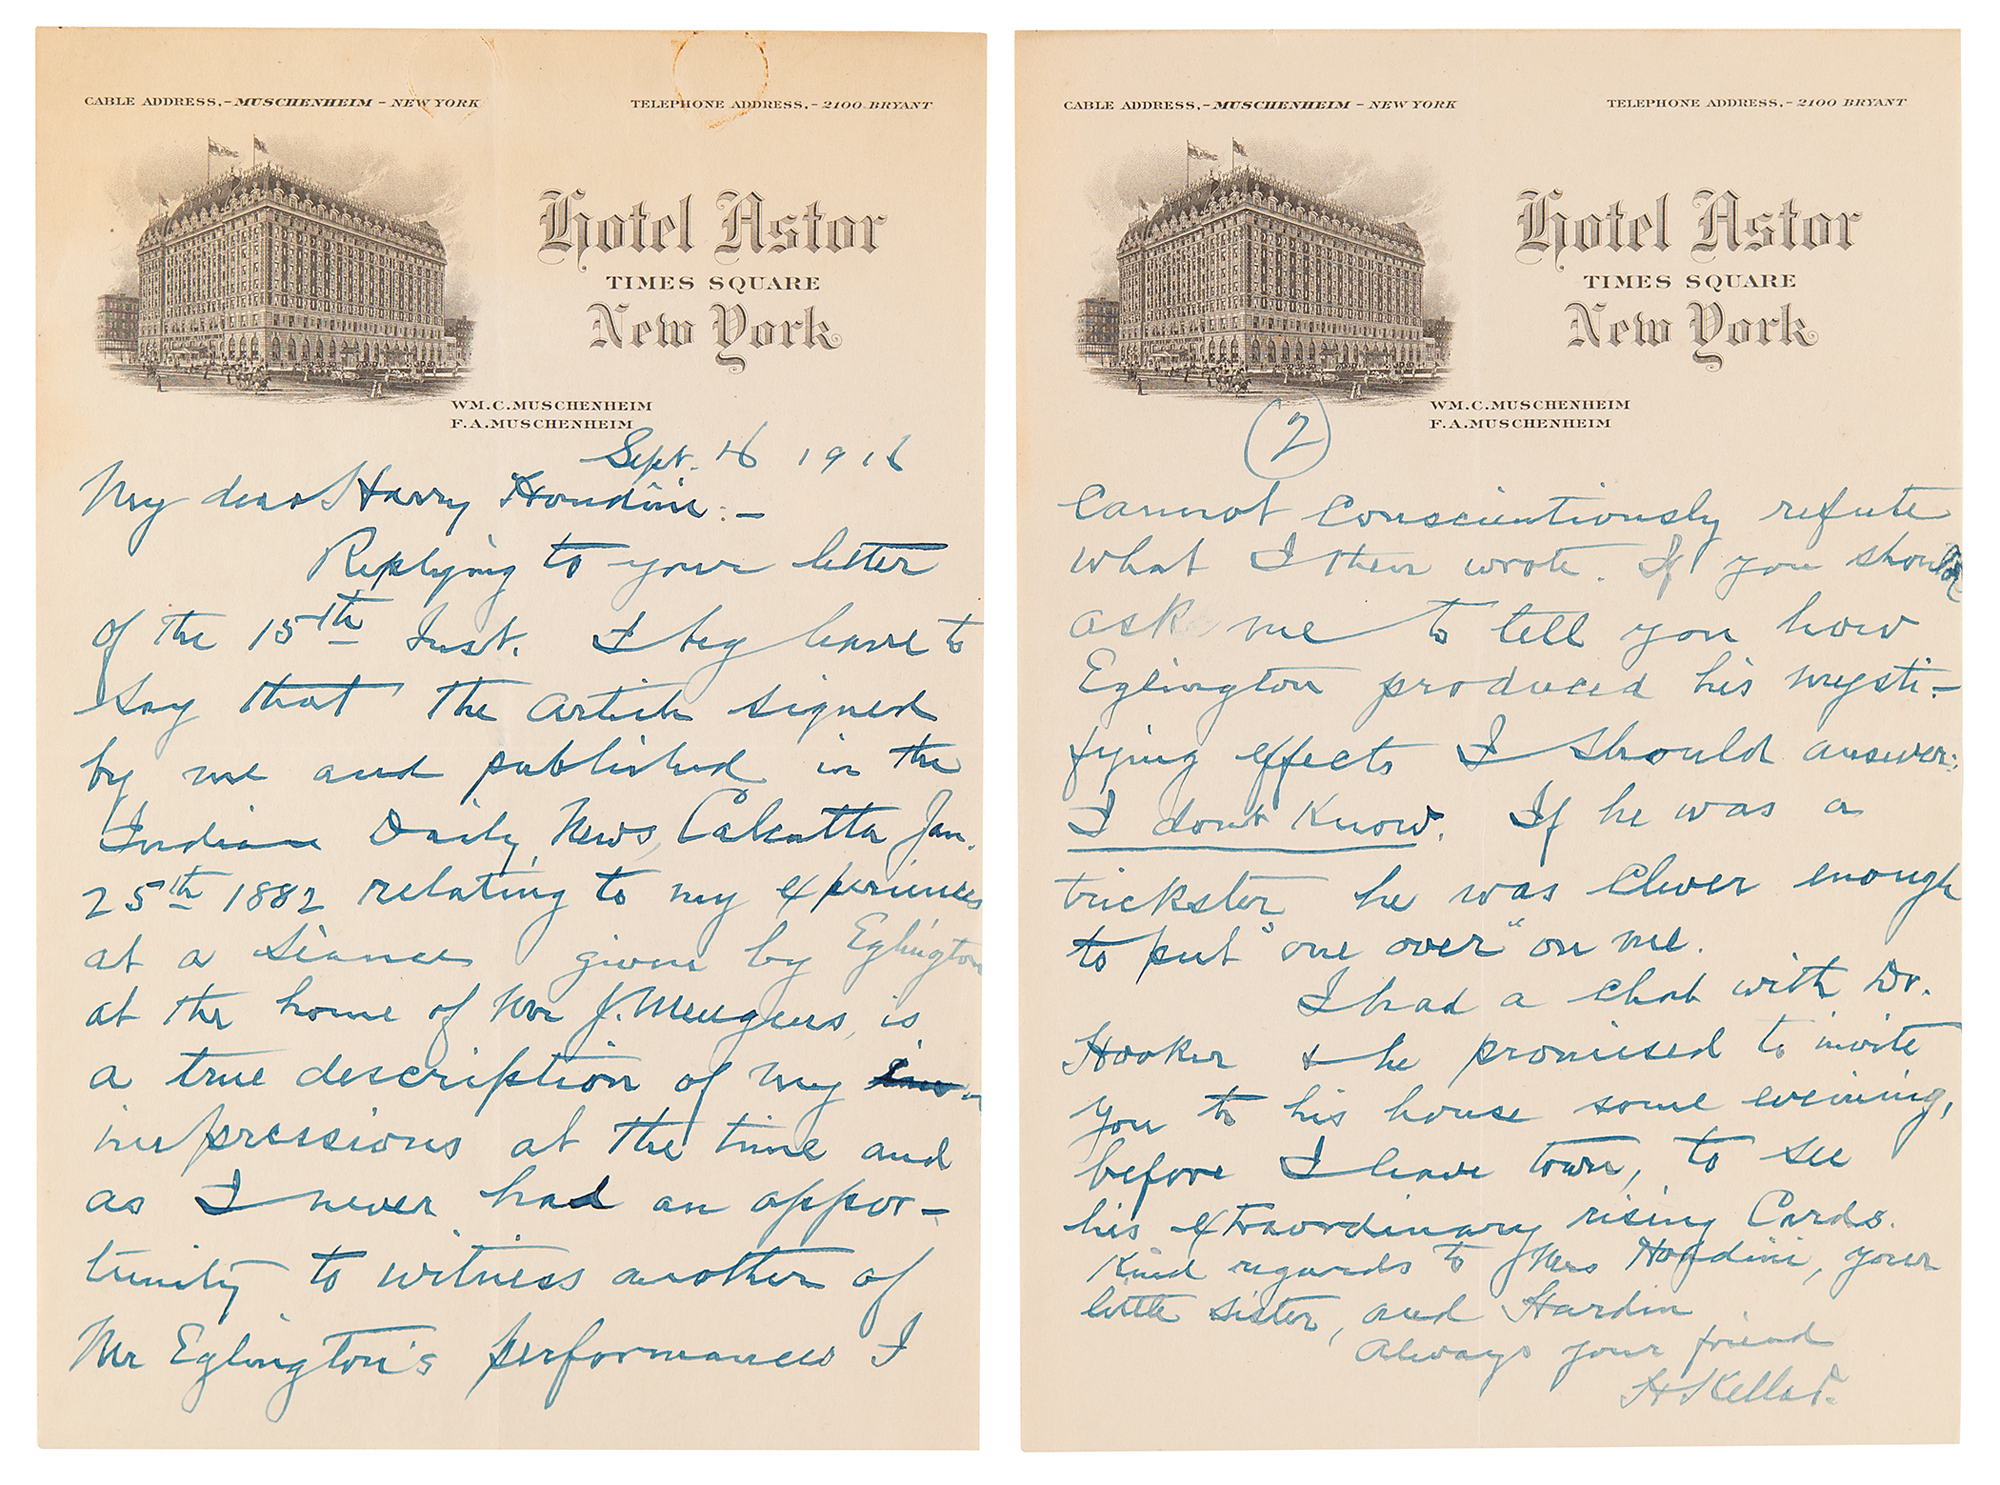 CABLE ADDRESS,-MUSCHENHEIM - NEW YORK
TELEPHONE ADDRESS,- 2100 BRYANT
Hotel Astor
TIMES SQUARE
New York
WM.C.MUSCHENHEIM
F.A.MUSCHENHEIM
Sept. 16 1916
My dear Harry Houdini:—
Replying to your letter
of the 15th Inst. I beg leave to
say that the article signed
by me and published in the
Indian Daily News, Calcutta Jan.
25th 1882 relating to my experiences
at a Séance given by Eglington
at the home of Mr J. Meugens, is
a true description of my
impressions at the time and
as I never had an oppor-
tunity to witness another of
Mr Eglington's performances I
CABLE ADDRESS,-MUSCHENHEIM - NEW YORK
TELEPHONE ADDRESS,- 2100 BRYANT
Hotel Astor
TIMES SQUARE
New York
WM.C.MUSCHENHEIM
F.A.MUSCHENHEIM
2
cannot conscientiously refute
what I then wrote. If you should
ask me to tell you how
Eglington produced his mysti-
fying effects I should answer:
I dont Know. If he was a
trickster he was clever enough
to put "one over" on me.
I had a chat with Dr.
Hooker & he promised to invite
you to his house some evening,
before I leave town, to see
his extraordinary rising Cards.
Kind regards to Mrs Houdini, your
little sister, and Hardin
Always your friend
H Kellar.